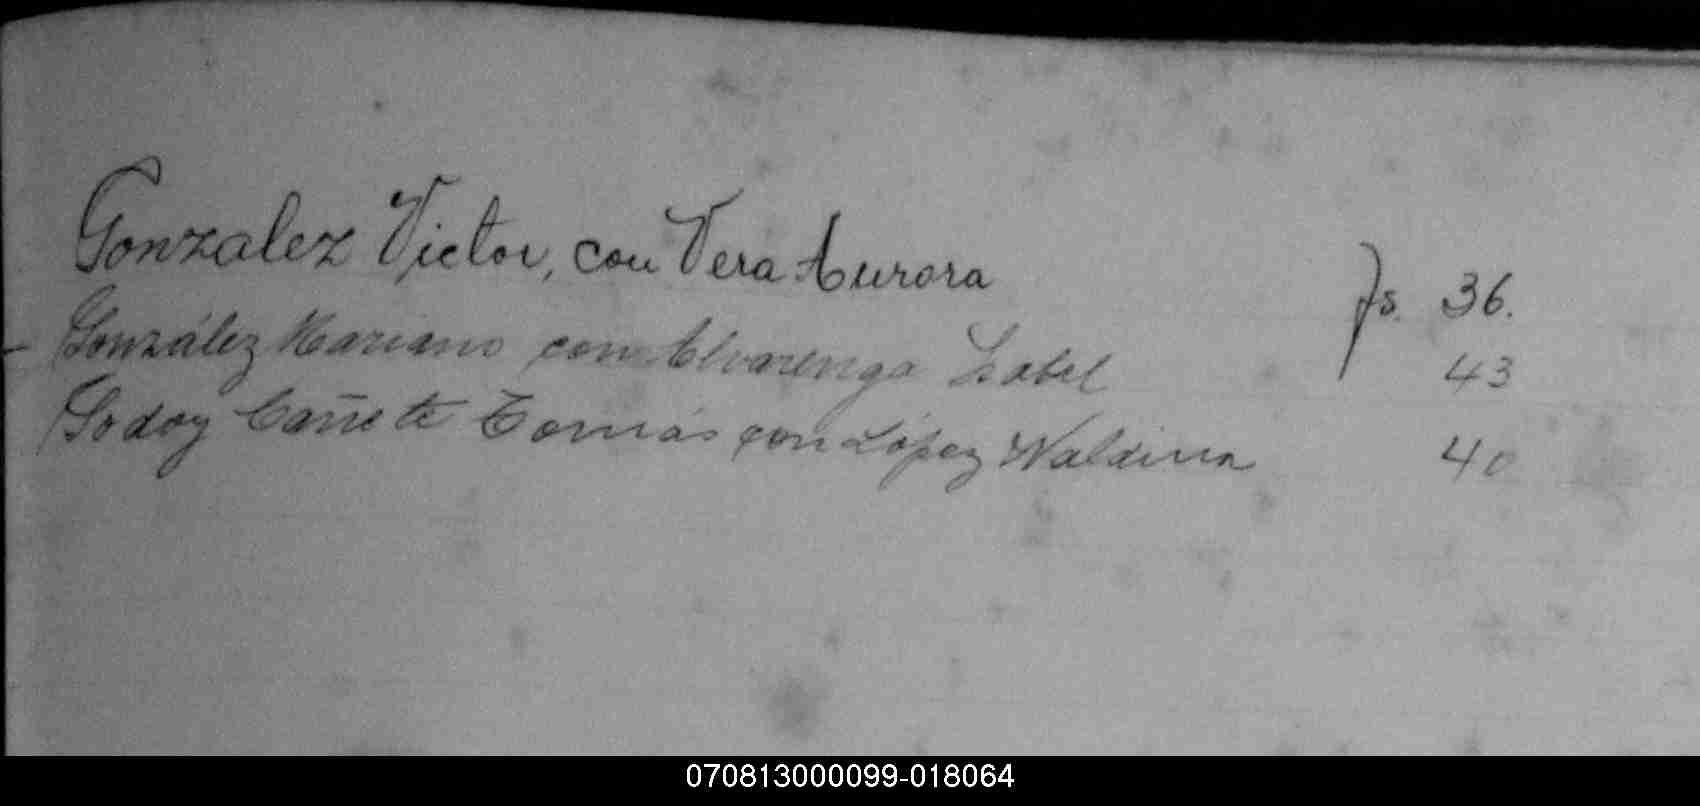 Gonzalez Victor, con Vera Aurora fs. 36.
González Mariano con Alvarenga Isabel 43
Godoy Cañete Tomás con López Waldina 40
070813000099-018064